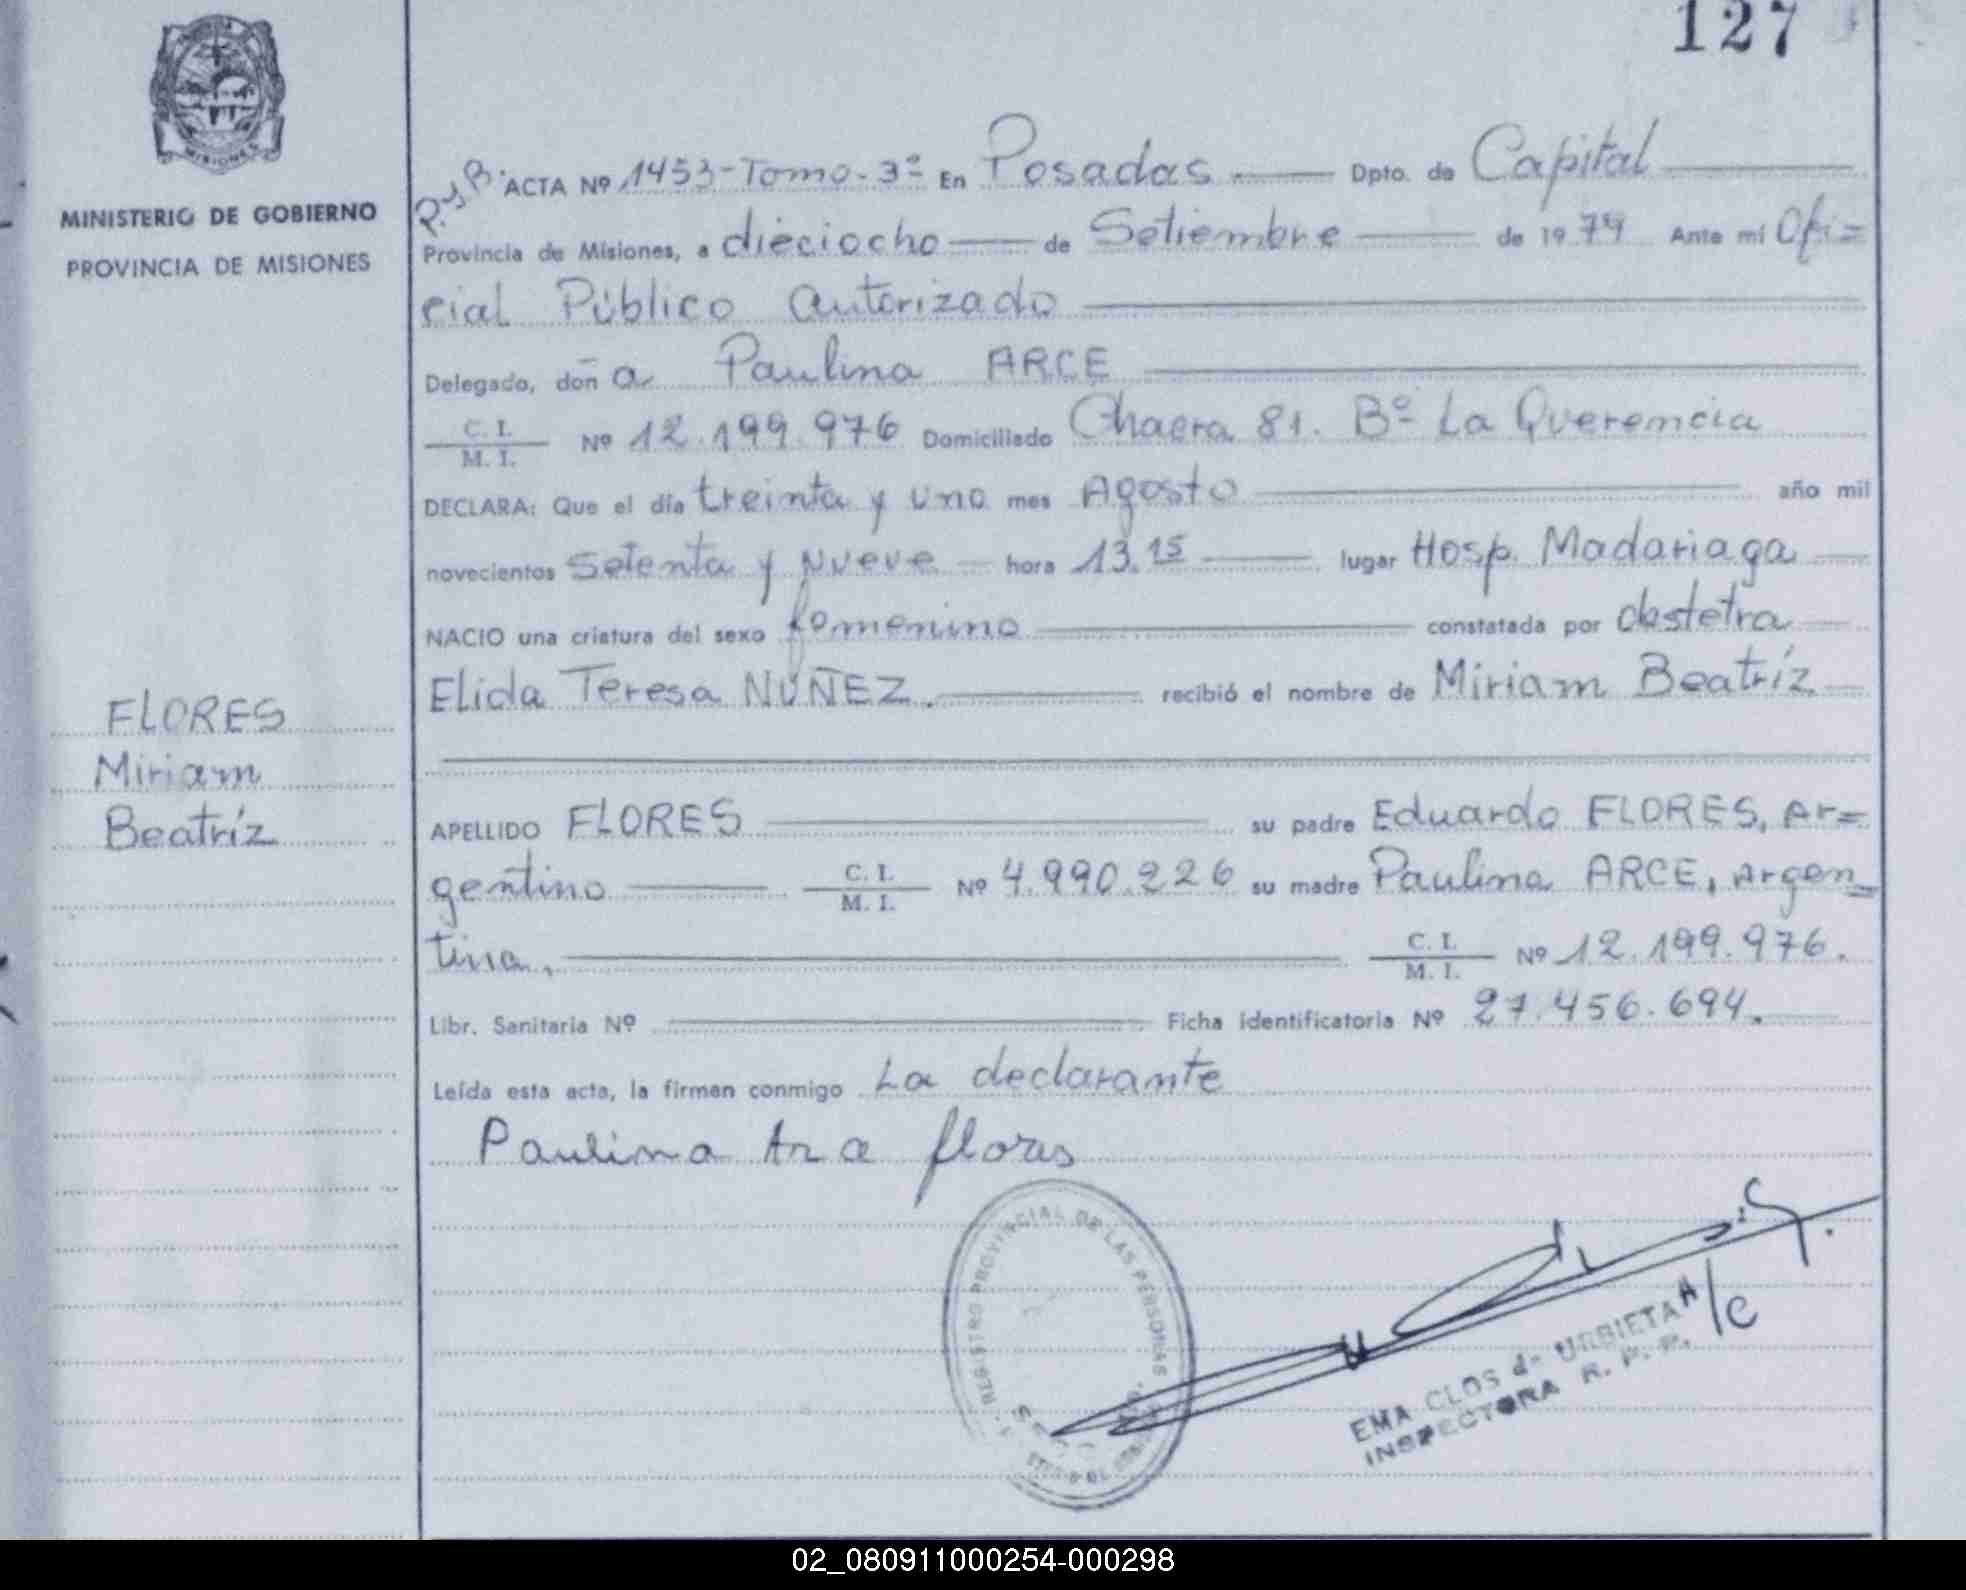 127
MISIONES
MINISTERIO DE GOBIERNO
PROVINCIA DE MISIONES
FLORES
Miriam
Beatríz
P. y B. ACTA Nº 1453-Tomo-3º En Posadas Dpto. de Capital
Provincia de Misiones, a dieciocho de Setiembre de 1979 Ante mí Ofi=
cial Público Autorizado
Delegado, doña Paulina ARCE
C. I.
M. I. Nº 12.199.976 Domiciliado Chacra 81. Bº La Querencia
DECLARA: Que el día treinta y uno mes Agosto año mil
novecientos Setenta y Nueve hora 13.15 lugar Hosp. Madariaga
NACIO una criatura del sexo femenino constatada por obstetra
Elida Teresa NUÑEZ. recibió el nombre de Miriam Beatríz
APELLIDO FLORES su padre Eduardo FLORES, Ar=
gentino C. I.
M. I. Nº 4.990.226 su madre Paulina ARCE, Argen=
tina, C. I.
M. I. Nº 12.199.976.
Libr. Sanitaria Nº Ficha identificatoria Nº 27.456.694.
Leída esta acta, la firman conmigo La declarante
Paulina flores
REGISTRO PROVINCIAL DE LAS PERSONAS
A/C
EMA CLOS de URBIETA
INSPECTORA R. P. P.
02_080911000254-000298